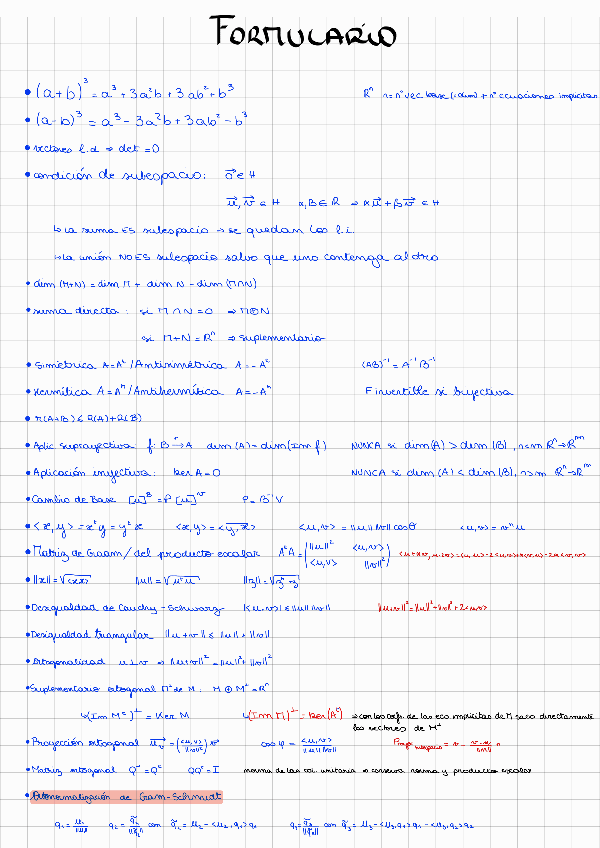 FORMULARIO
• (a+b)³ = a³ + 3a²b + 3ab² + b³ Rⁿ n = nº vec base (dim) + nº ecuaciones implícitas
• (a-b)³ = a³ - 3a²b + 3ab² - b³
• vectores l.d ⇒ det = 0
• condición de subespacio: 0⃗ ∈ H
u⃗, v⃗ ∈ H α, β ∈ R ⇒ αu⃗ + βv⃗ ∈ H
↳ la suma ES subespacio → se quedan los l.i.
↳ la unión NO ES subespacio salvo que uno contenga al otro
• dim (M+N) = dim M + dim N - dim (M∩N)
• suma directa: si M∩N = 0 ⇒ M⊕N
si M+N = Rⁿ ⇒ suplementario
• Simétrica A = Aᵗ / Antisimétrica A = -Aᵗ (AB)⁻¹ = A⁻¹B⁻¹
• Hermítica A = Aᴴ / Antihermítica A = -Aᴴ F invertible si biyectiva
• r(A+B) ≤ r(A) + r(B)
• Aplic suprayectiva f: B → A dim (A) = dim (Im f) NUNCA si dim(A) > dim (B), n<m Rⁿ→Rᵐ
• Aplicación inyectiva: ker A = 0 NUNCA si dim (A) < dim (B), n>m Rⁿ→Rᵐ
• Cambio de Base [u]ᴮ = P [u]ⱽ P = B⁻¹V
• <x,y> = xᵗy = yᵗx <x,y> = <y,x> <u,v> = ||u|| ||v|| cosθ <u,v> = vᴴu
• Matriz de Graam / del producto escalar AᵗA = ( ||u||² <u,v> <u,v> ||v||² )
• ||x|| = √<x,x> ||u|| = √uᴴu
• Desigualdad de Cauchy - Schwarz |<u,v>| ≤ ||u|| ||v|| ||u+v||² = ||u||² + ||v||² + 2<u,v>
• Desigualdad triangular ||u+v|| ≤ ||u|| + ||v||
• Ortogonalidad u⊥v ⇒ ||u+v||² = ||u||² + ||v||²
• Suplementario ortogonal M⊥ de M: M ⊕ M⊥ = Rⁿ
(Im Mᵗ)⊥ = Ker M (Im M)⊥ = Ker (Aᵗ) ⇒ con los coefs. de las ecs. implícitas de M saco directamente
los vectores de M⊥
• Proyección ortogonal u⃗ᵥ = (<u,v>/||v||²) v cos φ = <u,v>/||u|| ||v||
• Matriz ortogonal Q⁻¹ = Qᵗ QQᵗ = I norma de las col. unitaria ⇒ conserva norma y producto escalar
• Ortonormalización de Gram-Schmidt
q₁ = u₁/||u₁|| q₂ = q̃₂/||q̃₂|| con q̃₂ = u₂ - <u₂,q₁>q₁ q₃ = q̃₃/||q̃₃|| con q̃₃ = u₃ - <u₃,q₁>q₁ - <u₃,q₂>q₂